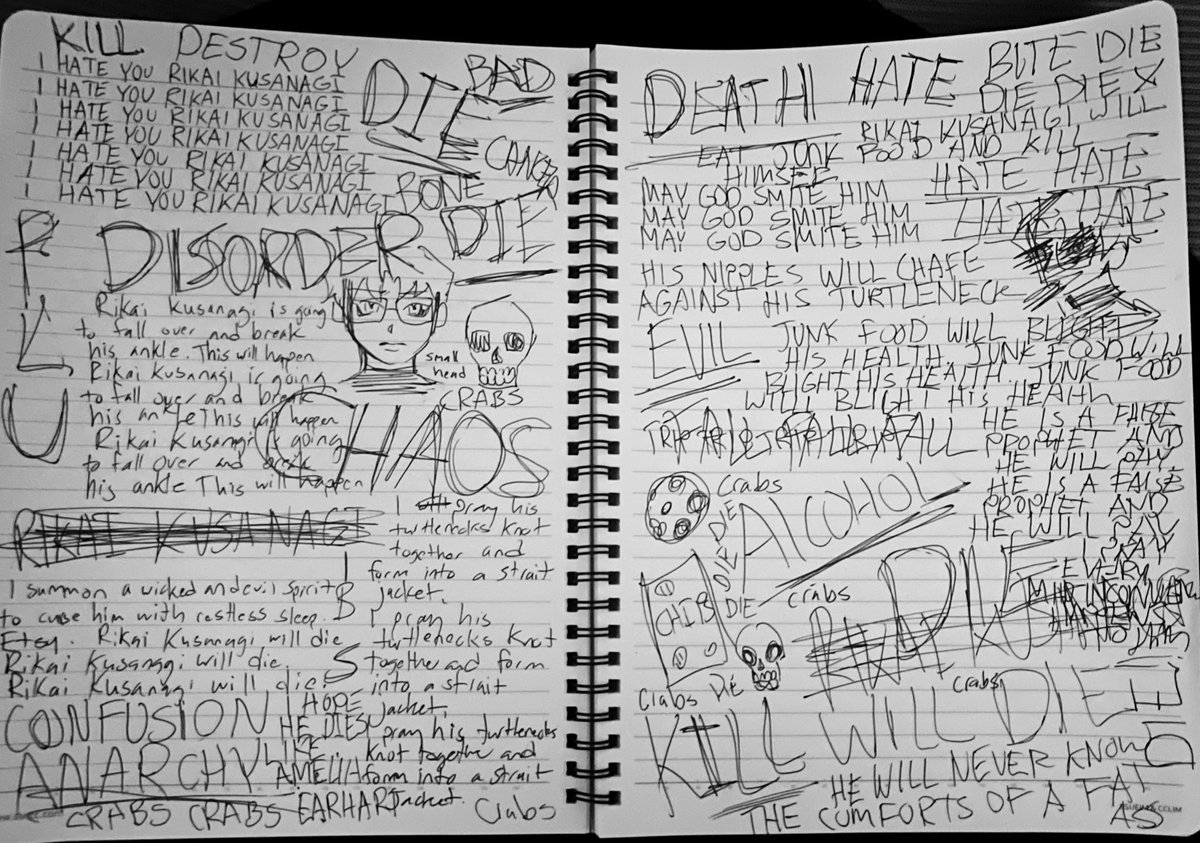 KILL DESTROY
I HATE YOU RIKAI KUSANAGI
I HATE YOU RIKAI KUSANAGI
I HATE YOU RIKAI KUSANAGI
I HATE YOU RIKAI KUSANAGI
I HATE YOU RIKAI KUSANAGI
I HATE YOU RIKAI KUSANAGI
I HATE YOU RIKAI KUSANAGI
DIE
BAD
CANCER
BONE
DIE
DISORDER
Rikai Kusanagi is going
to fall over and break
his ankle. This will happen
Rikai Kusanagi is going
to fall over and break
his ankle This will happen
Rikai Kusanagi is going
to fall over and break
his ankle This will happen
small
head
CRABS
CHAOS
RIKAI KUSANAGI
I summon a wicked and evil spirit
to curse him with restless sleep.
Etsy. Rikai Kusanagi will die
Rikai Kusanagi will die.
Rikai Kusanagi will die
I pray his
turtlenecks knot
together and
form into a strait
jacket.
I pray his
turtlenecks knot
together and form
into a strait
jacket.
I pray his turtlenecks
knot together and
form into a strait
jacket.
CONFUSION
ANARCHY
I HOPE
HE DIES
LIKE
AMELIA
EARHART
CRABS CRABS
Crabs
DEATH
HATE BITE DIE
DIE DIE X
RIKAI KUSANAGI WILL
EAT JUNK FOOD AND KILL
HIMSELF
MAY GOD SMITE HIM
MAY GOD SMITE HIM
MAY GOD SMITE HIM
HATE HATE
HATE HATE
HIS NIPPLES WILL CHAFE
AGAINST HIS TURTLENECK
EVIL
JUNK FOOD WILL BLIGHT
HIS HEALTH. JUNK FOOD WILL
BLIGHT HIS HEALTH JUNK FOOD
WILL BLIGHT HIS HEALTH
HE IS A FALSE
PROPHET AND
HE WILL PAY.
HE IS A FALSE
PROPHET AND
HE WILL PAY
Crabs
DIE
DIE
DIE
ALCOHOL
CHIPS
crabs
DIE
I PRAY
EVERY
Crabs
DIE
crabs
KILL WILL DIE
HE WILL NEVER KNOW
THE COMFORTS OF A FAT
ASS